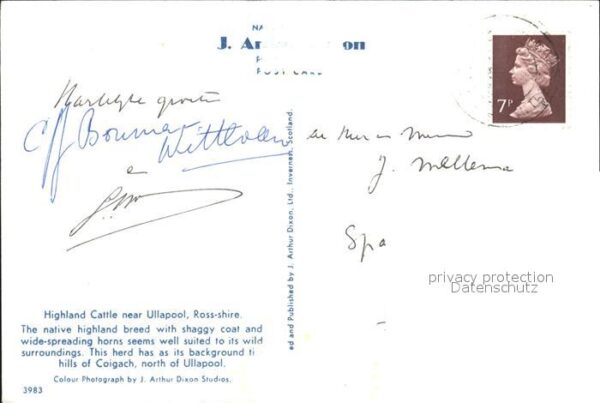 J. Ar
on
Hartelijke groeten
Bouma
de Heer en Mevr
J. Mellema
Spa
7P
privacy protection
Datenschutz
ed and Published by J. Arthur Dixon, Ltd., Inverness, Scotland.
Highland Cattle near Ullapool, Ross-shire.
The native highland breed with shaggy coat and
wide-spreading horns seems well suited to its wild
surroundings. This herd has as its background ti
hills of Coigach, north of Ullapool.
Colour Photograph by J. Arthur Dixon Studios.
3983